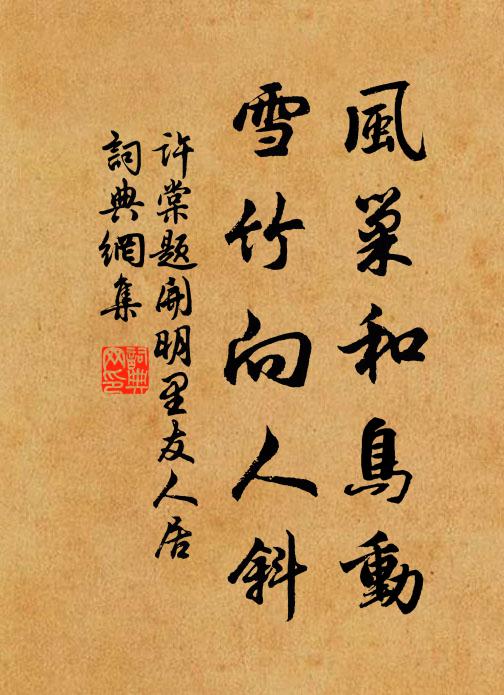 風巢和鳥動
雪竹向人斜
許棠題開明里友人居
詞典網集
詞典網印